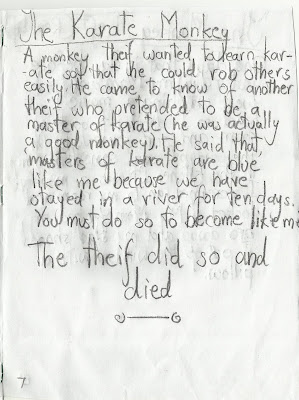 The Karate Monkey
A monkey theif wanted to learn kar-
-ate so that he could rob others
easily. He came to know of another
theif who pretended to be a
master of karate (he was actually
a good monkey). He said that
'masters of karate are blue
like me because we have
stayed in a river for ten days.
You must do so to become like me
The theif did so and
died
7